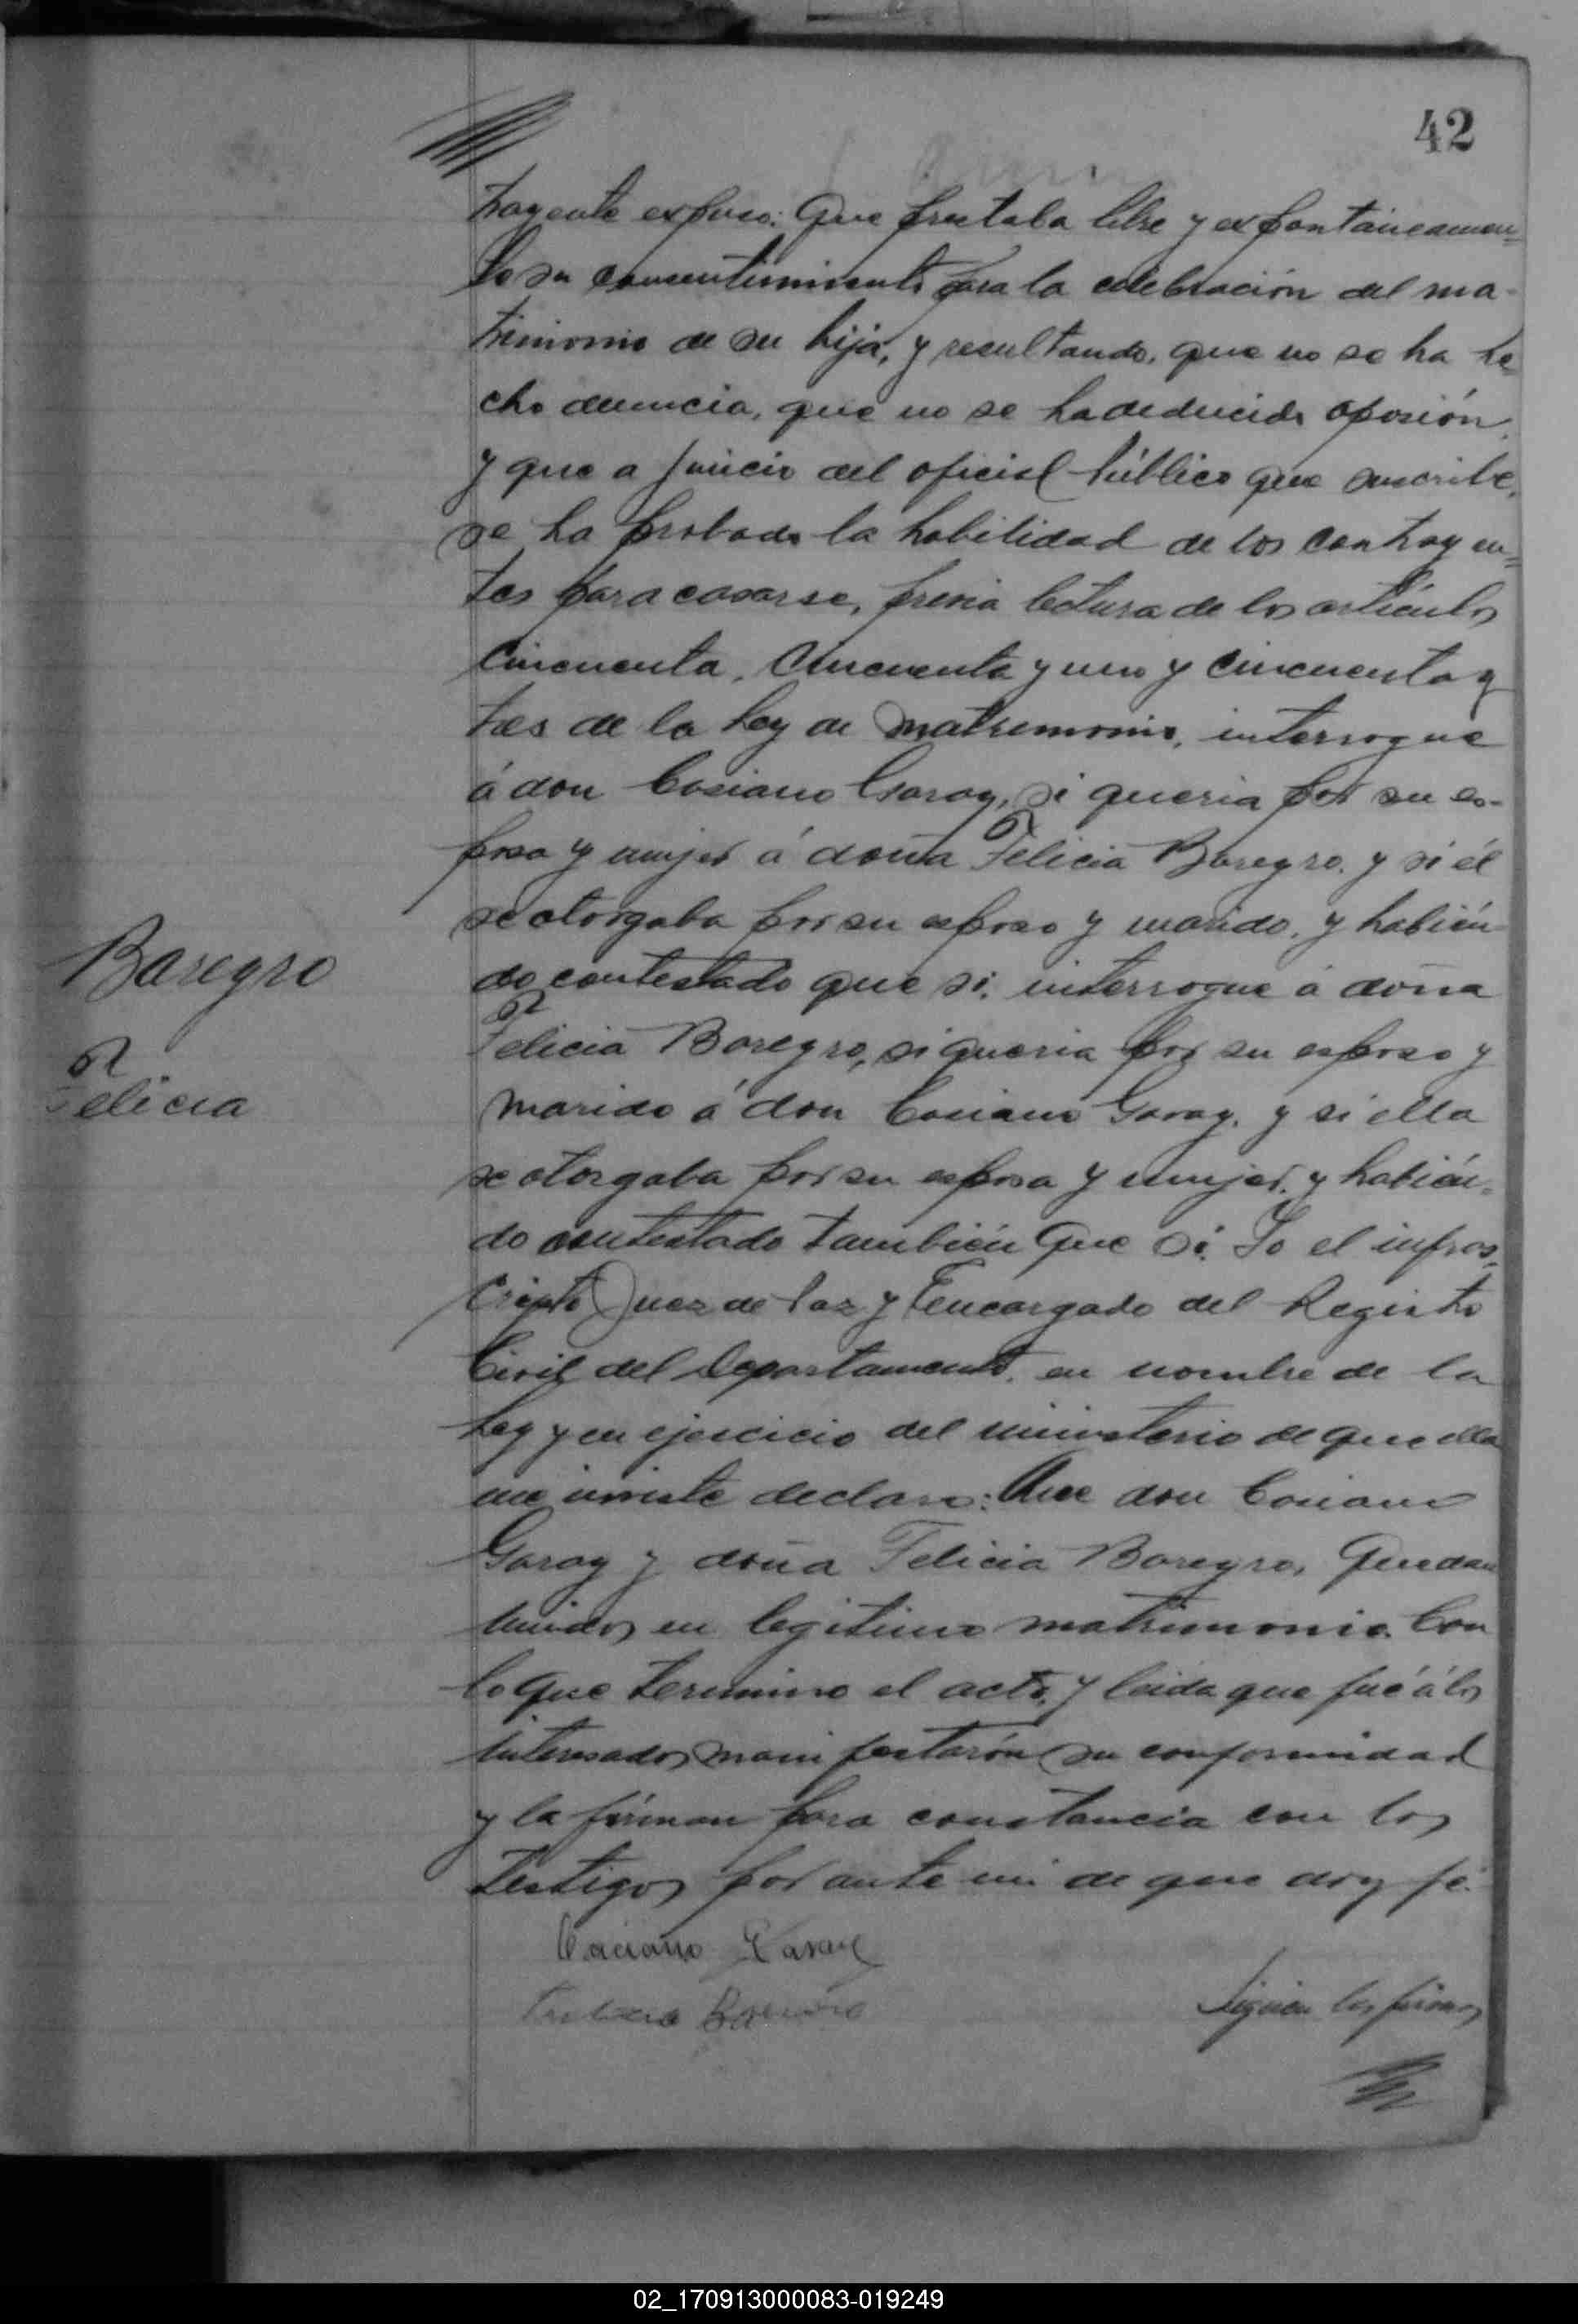 42
trayente expuso: Que prestaba libre y expontáneamen=
te su consentimiento para la celebración del ma-
trimonio de su hija, y resultando, que no se ha he=
cho denuncia, que no se ha deducido oposión,
y que a juicio del oficial Público que suscribe,
se ha probado la habilidad de los contrayen=
tes para casarse, previa lectura de los artículos
cincuenta, cincuenta y uno y cincuenta y
tres de la Ley de matrimonio, interrogue
á don Casiano Garay, si queria por su es-
posa y mujer á doña Felicia Baregro, y si él
se otorgaba por su esposo y marido, y habién-
do contestado que si, interrogue á doña
Baregro
Felicia Baregro, si queria por su esposo y
Felicia
marido á don Casiano Garay, y si ella
se otorgaba por su esposa y mujer, y habién=
do contestado también que si. Yo el infras=
cripto Juez de Paz y Encargado del Registro
Civil del Departamento, en nombre de la
Ley y en ejercicio del ministerio de que ella
me inviste declaro: Que don Casiano
Garay y doña Felicia Baregro, Quedan
unidos en legitimo matrimonio. Con
lo que termino el acto, y leida que fué á los
interesados manifestarón su conformidad
y la firman para constancia con los
testigos por ante mi de que doy fé.
Caciano Garay
Siguen las firmas
02_170913000083-019249